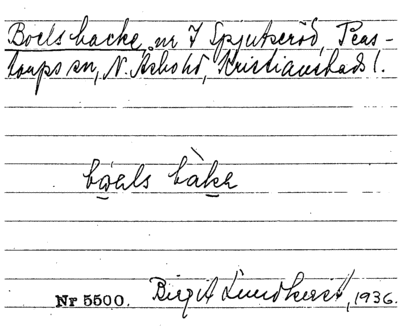 Boelsbacke, nr 7 Spjutseröd, Peas-
torps sn, N. Åsbo hd, Kristianstads l.
bꞷels bàkɐ
Nr 5500. Birgit Lundkvist, 1936.